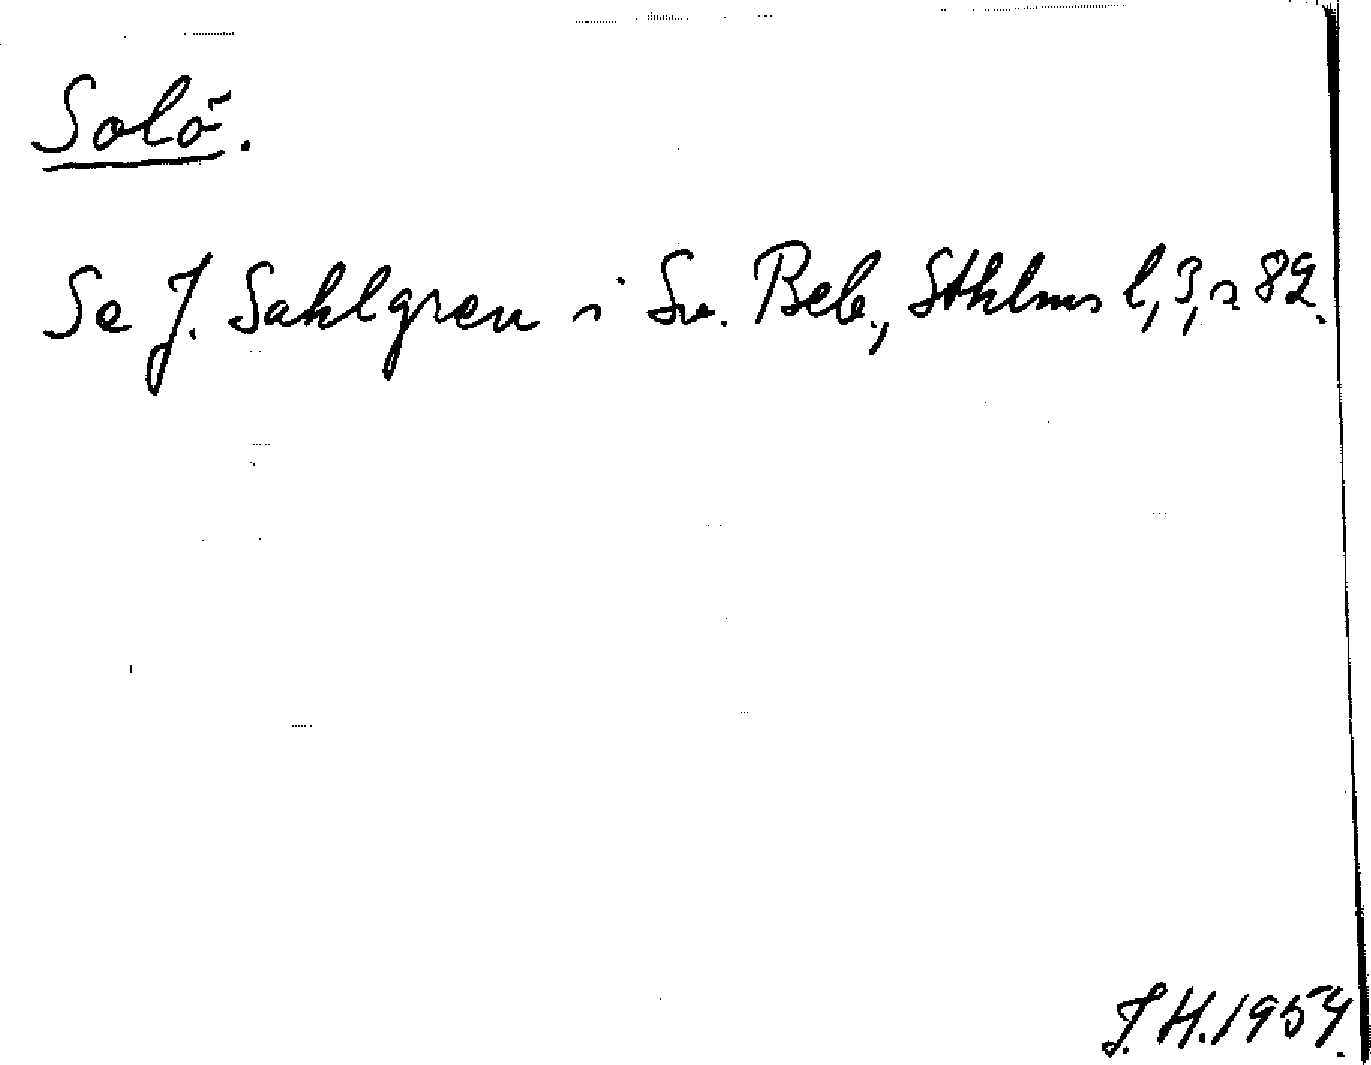 Solö.
Se J. Sahlgren i Sv. Beb., Sthlms l, 3, s 82.
J.H. 1954.